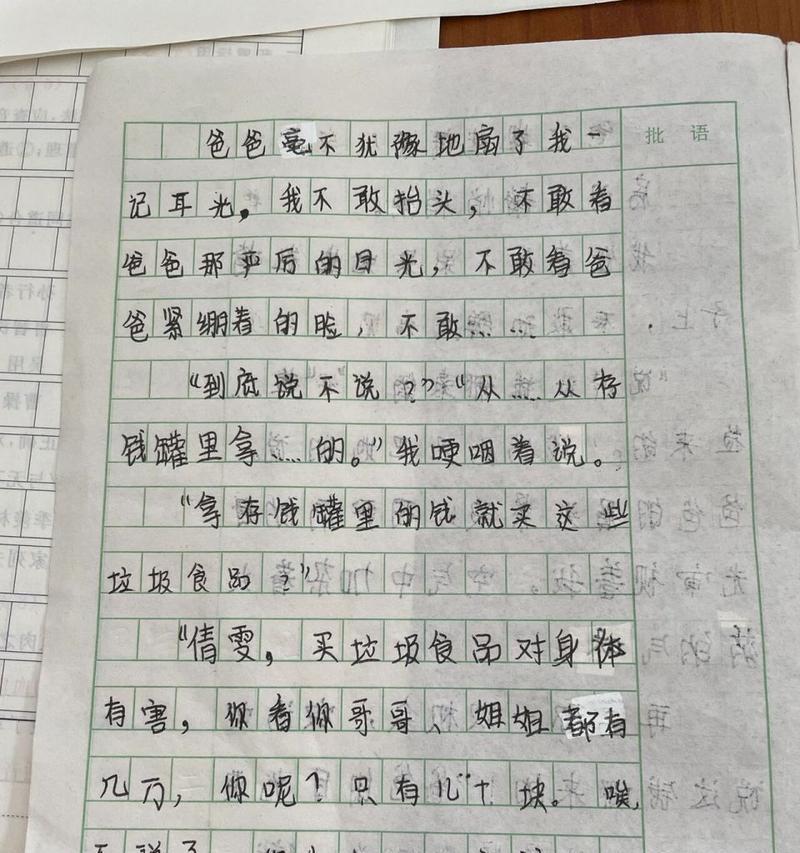 爸爸毫不犹豫地扇了我一
批语
记耳光。我不敢抬头，不敢看
爸爸那严厉的目光，不敢看爸
爸紧绷着的脸，不敢……
“到底说不说？”“从……从存
钱罐里拿……的。”我哽咽着说。
“拿存钱罐里的钱就买这些
垃圾食品？”
“倩雯，买垃圾食品对身体
有害，你看你哥哥、姐姐都有
几万，你呢？只有几十块。唉